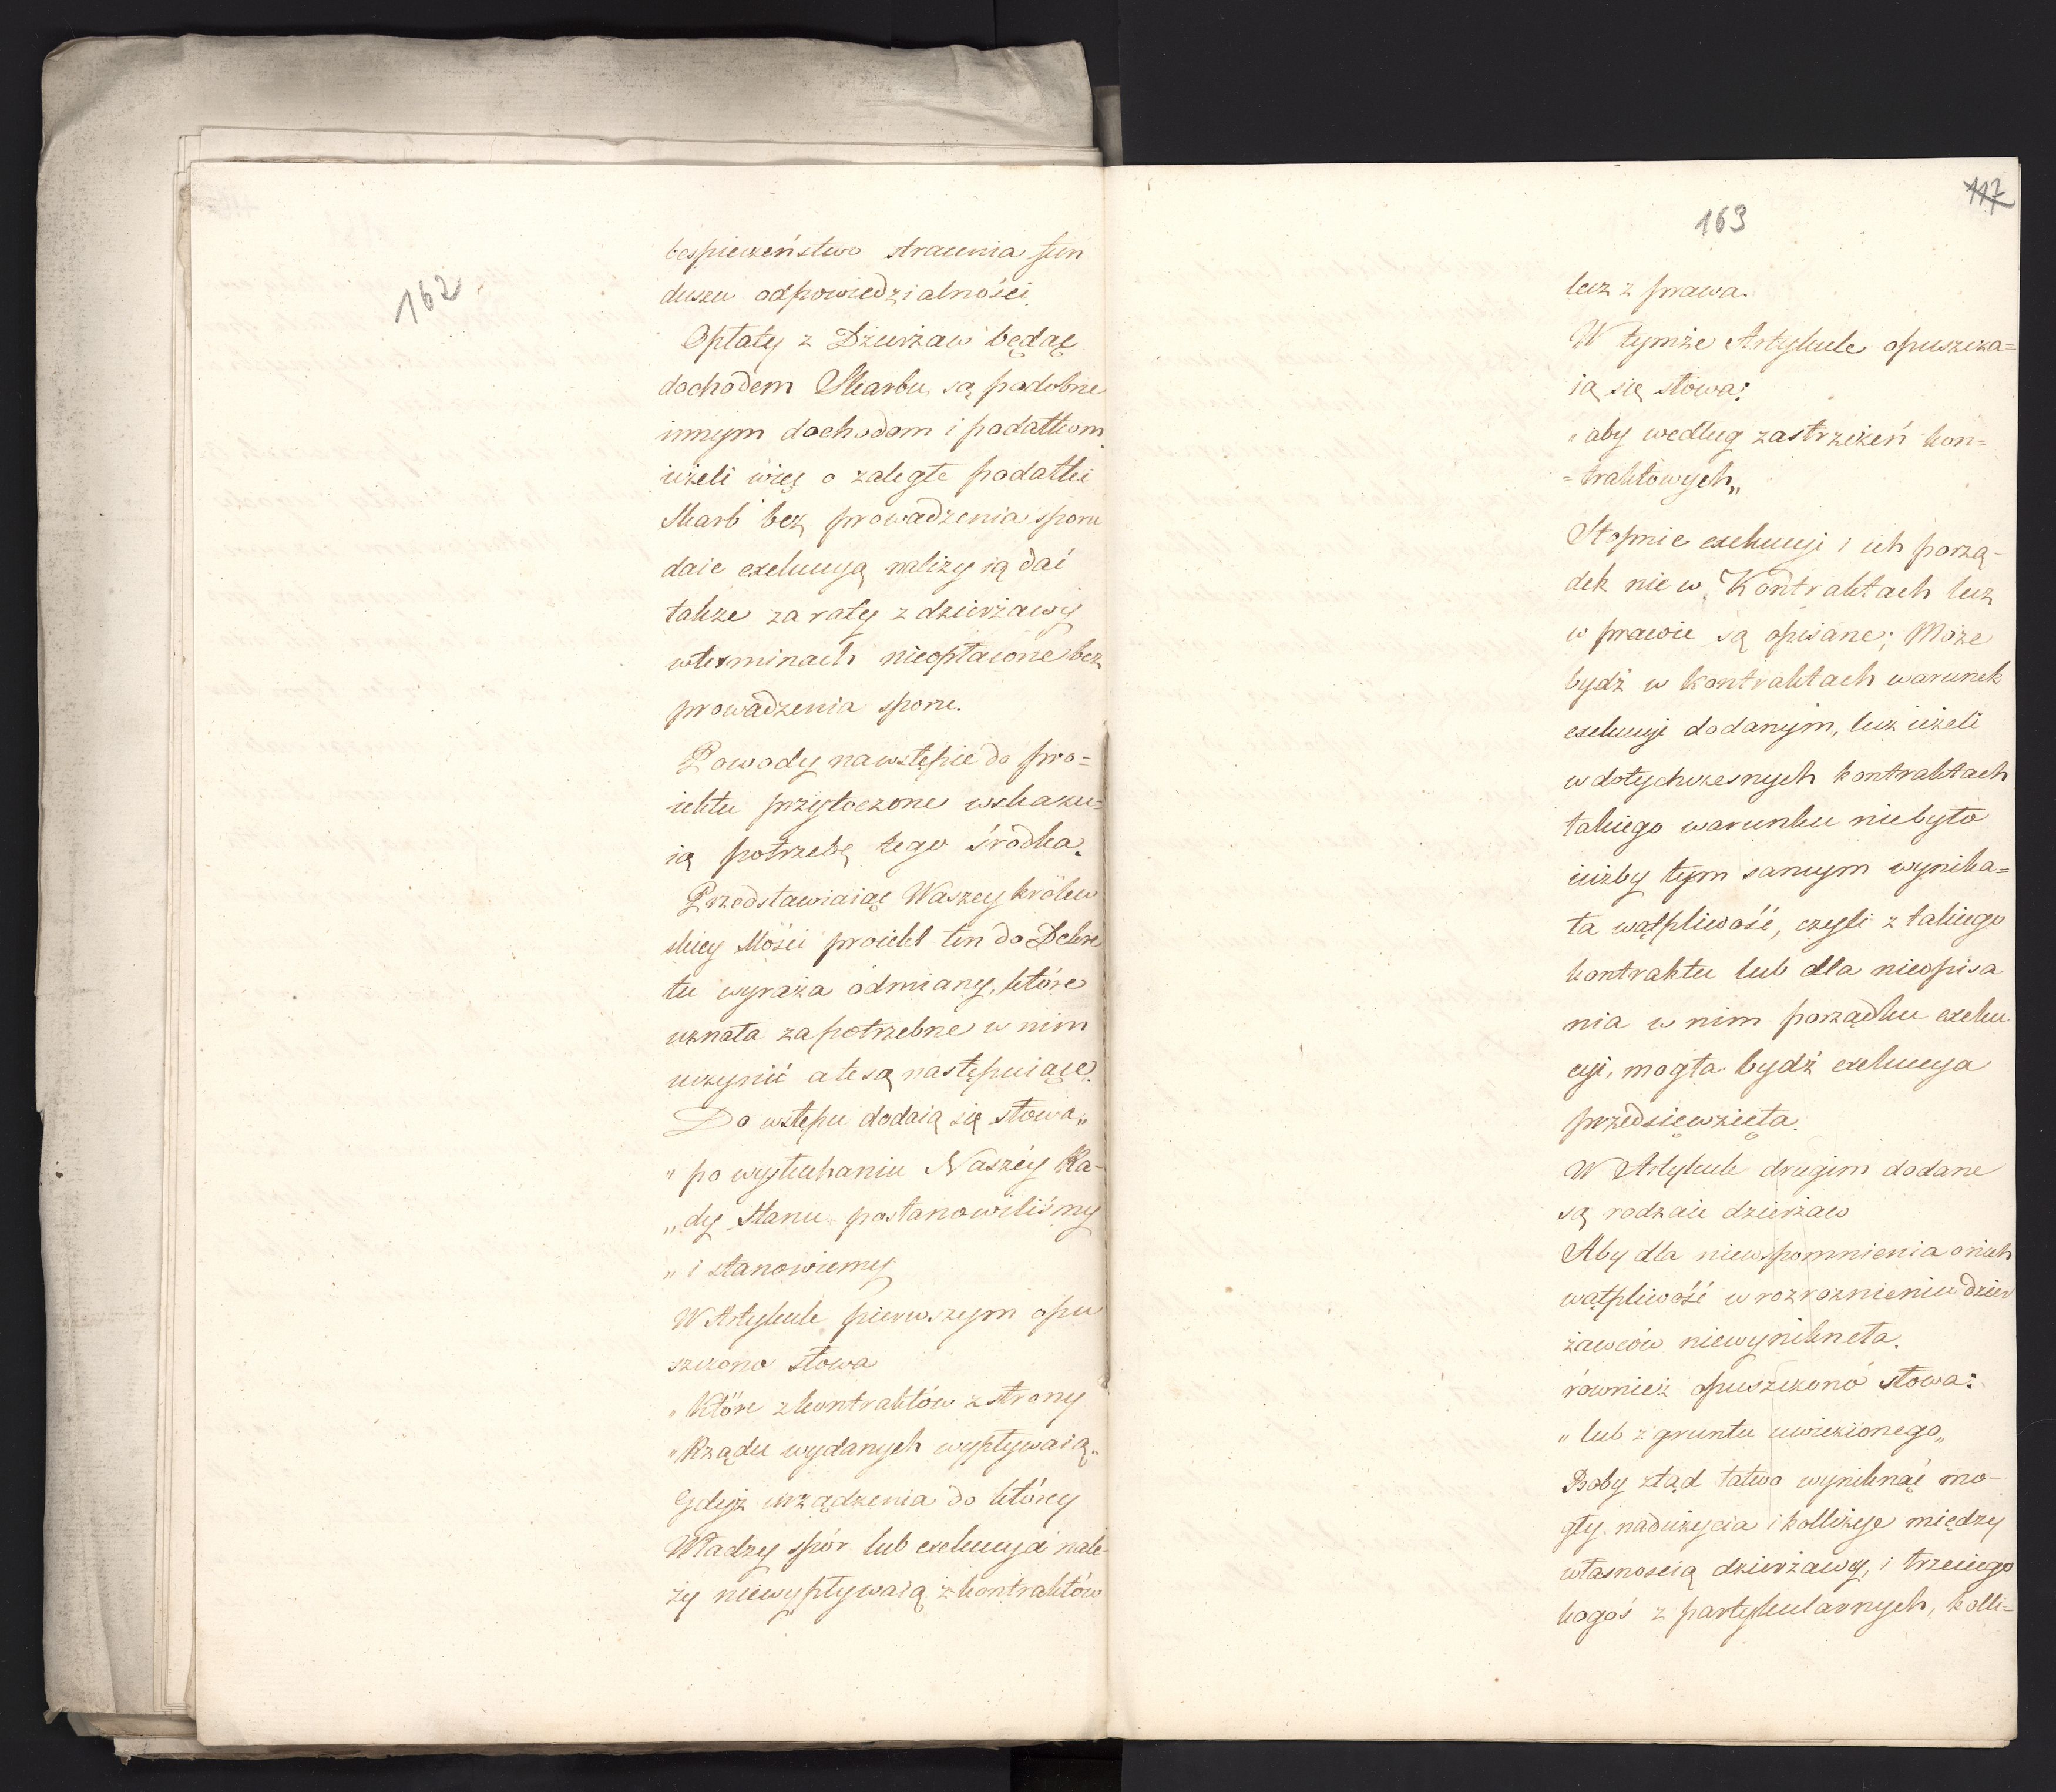 162
bespieczeństwo stracenia fun
duszu odpowiedzialności.
Opłaty z Dzierżaw będąc
dochodem Skarbu, są podobne
innym dochodom i podatkom
ieżeli więc o zaległe podatki
Skarb bez prowadzenia sporu
daie exekucyą należy ią dać
także za raty z dzierżawy
w terminach nieopłacone bez
prowadzenia sporu.
Powody na wstępie do pro=
iektu przytoczone wskazu=
ią potrzebę tego środka.
Przedstawiaiąc Waszey Królew
skiey Mości proiekt ten do Dekre
tu wyraża odmiany, które
uznała za potrzebne w nim
uczynić a te są następuiące.
Do wstępu dodaią się słowa„
„ po wysłuchaniu Naszéy Ra-
„ dy Stanu postanowiliśmy
„ i stanowiemy
W Artykule pierwszym opu
szczono słowa
„ Które z kontraktów z strony
„ Rządu wydanych wypływaią„
Gdyż urządzenia do którey
Władzy spór lub exekucya nale
ży niewypływaią z kontraktów
117
163
lecz z prawa.
W tymże Artykule opuszcza=
ią się słowa:
„ aby według zastrzeżeń kon=
= traktowych„
Stopnie exekucyi i ich porzą-
dek nie w Kontraktach lecz
w prawie są opisane; Może
bydź w kontraktach warunek
exekucyi dodanym, lecz ieżeli
w dotychczesnych kontraktach
takiego warunku niebyło
iużby tym samym wynika=
ła wątpliwość, czyli z takiego
kontraktu lub dla nieopisa
nia w nim porządku exeku
cyi, mogła bydź exekucya
przedsięwzięta.
W Artykule drugim dodane
są rodzaie dzierżaw
Aby dla niewspomnienia o nich
wątpliwość w rozroznieniu dzier
żawców niewyniknęła.
również opuszczono słowa:
„ lub z gruntu uwiezionego„
Boby ztąd łatwo wyniknąć mo-
gły nadużycia i kollizye między
własnością dzierżawcy, i trzeciego
kogoś z partykularnych, kolli=